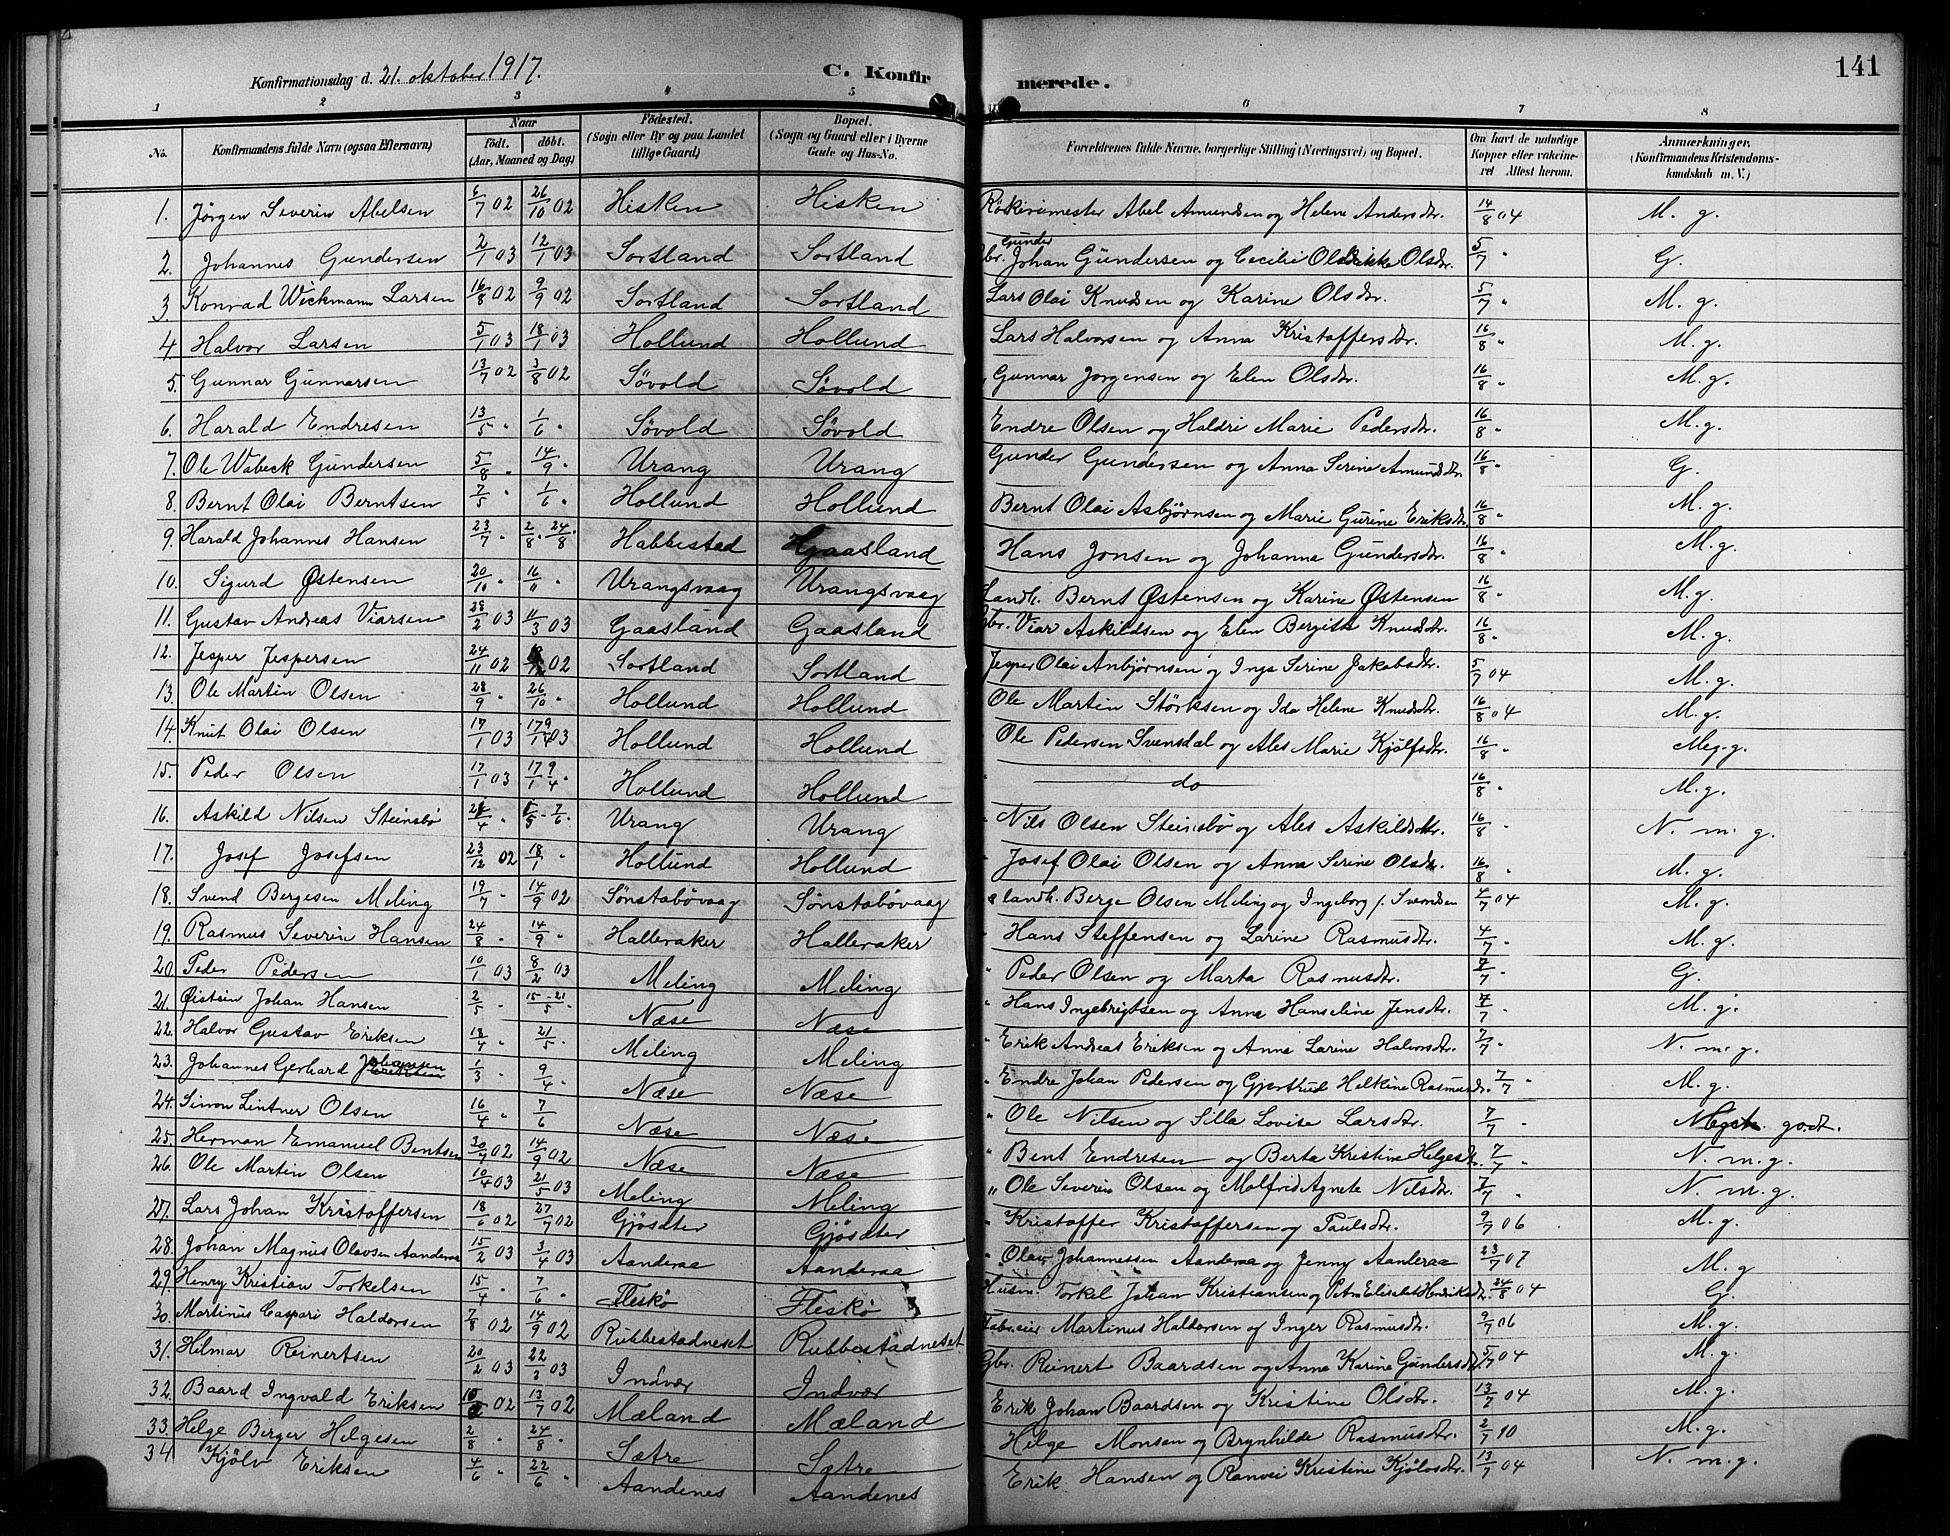 141
Konfirmationsdag d. 21. oktober 1917. C. Konfirmerede.
1 2 3 4 5 6 7 8
No. Konfirmandens fulde Navn (ogsaa Efternavn) Naar födt. döbt. (Aar, Maaned og Dag) Födested. (Sogn eller By og paa Landet tillige Gaard) Bopæl. (Sogn og Gaard eller i Byerne Gade og Hus-No. Forældrenes fulde Navne, borgerlige Stilling (Næringsvei) og Bopæl. Om havt de naturlige Kopper eller vakcineret Attest herom. Anmærkninger. (Konfirmandens Kristendomskundskab m. V.)
1. Jørgen Severin Abelsen 6/7 02 26/10 02 Hisken Hisken Abel Amundsen og Helene Andersdtr. 14/8 04 M. g.
2. Johannes Gundersen 2/1 03 12/1 03 Sortland Sortland Gbr. Gunder Johan Gundersen og Cecilie Olsdtr. 5/7 " G.
3. Konrad Wickmann Larsen 16/8 02 9/9 02 Sortland Sortland Lars Olai Knudsen og Karine Olsdtr. 5/7 " M. g.
4 Halvor Larsen 5/1 03 18/1 03 Hollund Hollund Lars Halvorsen og Anna Kristoffersdtr. 16/8 " M. g.
5. Gunnar Gunnarsen 13/7 02 3/8 02 Søvold Søvold " Gunnar Jørgensen og Elen Olsdtr. 16/8 " M. g.
6. Harald Endresen 13/5 " 1/6 " Søvold Søvold Endre Olsen og Haldri Marie Pedersdtr. 16/8 " M. g.
7. Ole Wabeck Gundersen 5/8 " 14/9 " Urang Urang Gunder Gundersen og Anna Serine Amundsdtr. 16/8 " G.
8. Bernt Olai Berntsen 7/5 " 1/6 " Hollund Hollund Bernt Olai Asbjørnsen og Marie Gurine Eriksdtr. 16/8 " M. g.
9. Harald Johannes Hansen 23/7 " 2/8 - 24/8 " Habbestad Gaasland Hans Jonsen og Johanna Gundersdtr. 16/8 " M. g.
10. Sigurd Østensen 20/10 " 16/11 " Urangsvaag Urangsvaag Landh. Bernt Østensen og Karine Østensen 16/8 " M. g.
11. Gustav Andreas Viarsen 28/2 03 11/3 03 Gaasland Gaasland Gbr. Viar Askildsen og Elen Bergitte Knudsdtr. 16/8 " M. g.
12. Jesper Jespersen 24/11 02 02 Sortland Sortland Jesper Olai Anbjørnsen og Inga Serine Jakobsdtr. 5/7 04 M. g.
13. Ole Martin Olsen 28/9 " 26/10 " Hollund Hollund Ole Martin Størksen og Ida Helene Knudsdtr. 16/8 04 M. g.
14. Knut Olai Olsen 17/1 03 17/1 9/4 03 Hollund Hollund Ole Pedersen Svensdal og Ales Marie Kjølfsdtr. 16/8 " Meg. g.
15. Peder Olsen 17/1 03 17/1 9/4 " Hollund Hollund " do 16/8 " M. g.
16. Askild Nilsen Steinsbø 24/4 " 5/5 - 7/6 " Urang Urang " Nils Olsen Steinsbø og Ales Askildsdtr. 16/8 " N. m. g.
17. Josef Josefsen 23/12 02 18/1 " Hollund Hollund " Josef Olai Olsen og Anna Serine Olsdtr. 16/8 " M. g.
18. Svend Bergesen Meling 19/7 " 14/9 02 Sønstabøvaag Sønstabøvaag landh. Berge Olsen Meling og Ingeborg f. Svendsen 4/7 04 M. g.
19. Rasmus Severin Hansen 24/8 " 14/9 " Halleraker Halleraker " Hans Steffensen og Larine Rasmusdtr. 4/7 " M. g.
20 Peder Pedersen 10/1 03 8/2 03 Meling Meling " Peder Olsen og Marta Rasmusdtr. 7/7 " G.
21. Øistein Johan Hansen 2/5 " 15-21/5 " Næse Næse " Hans Ingebrigtsen og Anna Hanseline Jensdtr. 7/7 " M. g.
22. Halvor Gustav Eriksen 18/4 " 21/5 " Meling Meling " Erik Andreas Eriksen og Anna Larine Halvorsdtr. 7/7 " N. m. g.
23. Johannes Gerhard Johansen 1/3 " 9/4 " Næse Næse " Endre Johan Pedersen og Gjertrud Helkine Rasmusdtr. 7/7 " M. g.
24. Simon Lintner Olsen 16/4 " 7/6 Næse Næse " Ole Nilsen og Silla Lovise Larsdtr. 7/7 " Megt. godt.
25. Herman Emanuel Bentsen 30/7 02 14/9 02 Næse Næse " Bent Endresen og Berta Kristine Helgesdtr. 7/7 " N. m. g.
26. Ole Martin Olsen 10/4 03 21/5 03 Meling Meling " Ole Severin Olsen og Malfrid Agnete Nilsdtr. 7/7 " N. m. g.
27. Lars Johan Kristoffersen 18/6 02 27/7 02 Gjøsdter Gjøsdter " Kristoffer Kristoffersen og Paulsdtr. 9/7 06 M. g.
28. Johan Magnus Olavsen Aanderaa 15/2 03 3/4 03 Aanderaa Aanderaa " Olav Johannessen Aanderaa og Jenny Aanderaa 23/7 07 M. g
29. Henry Kristian Torkelsen 15/4 " 7/6 " Fleskø Fleskø Husm. Torkel Johan Kristiansen og Petra Elisabet Henriksdtr. 24/8 04 G.
30. Martinus Caspari Haldorsen 7/8 02 14/9 02 Rubbestadneset Rubbestadneset Martinus Haldorsen og Inger Rasmusdtr. 9/7 06 M. g.
31. Hilmar Reinertsen 20/2 03 22/3 03 Indvær Indvær Gbr. Reinert Baardsen og Anna Karine Gundersdtr. 5/7 04 M. g.
32. Baard Ingvald Eriksen 02 13/7 02 Mæland Mæland Erik Johan Baardsen og Kristine Olsdtr. 13/7 04 M. g.
33. Helge Berger Helgesen 2/8 " 24/8 " Sætre Sætre Helge Monsen og Brynhilde Rasmusdtr. 2/7 10 M. g.
34 Kjølv Eriksen 4/6 " 22/6 " Aandenes Aandenes Erik Hansen og Ranvei Kristine Kjølvsdtr. 13/7 04 N. m. g.